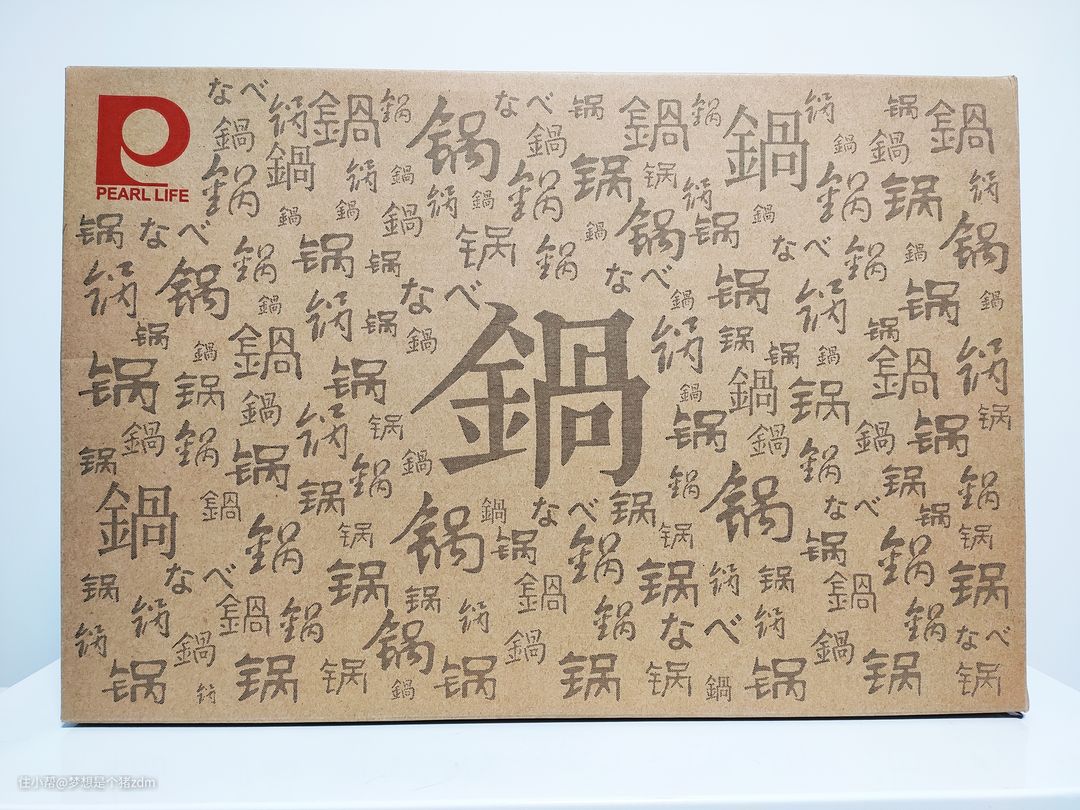 PEARL LIFE
なべ 锅 鍋 鍋 锅 なべ 锅 鍋 鍋 锅 锅 鍋
鍋 鍋 鍋 鍋 鍋 鍋
锅 鍋 锅 鍋 锅 锅 锅 锅 锅 锅 锅
鍋 鍋 鍋 锅 鍋 锅 鍋
锅 なべ 锅 锅 锅 鍋 锅 锅 なべ 锅 鍋 锅
锅 锅 锅 なべ なべ 锅 锅 锅
鍋 锅 锅 鍋 鍋 鍋
锅 鍋 鍋 锅 锅 锅 鍋 锅 锅
锅 锅 鍋 锅 鍋 鍋 锅 鍋
鍋 锅 锅 锅 鍋 锅 锅
锅 鍋 锅 锅 鍋 锅 鍋 锅 锅
鍋 鍋 锅 锅 鍋 なべ 锅 锅 なべ 锅 锅
锅 锅 锅 锅 锅 锅 锅 锅 锅
锅 なべ 锅 锅 鍋 锅 锅 锅 鍋 锅
锅 锅 鍋 锅 锅 锅 锅 なべ 锅 锅 なべ
鍋 鍋 鍋
锅 锅 锅 锅 鍋 锅 锅 锅 鍋 锅 锅 锅
住小帮@梦想是个猪zdm